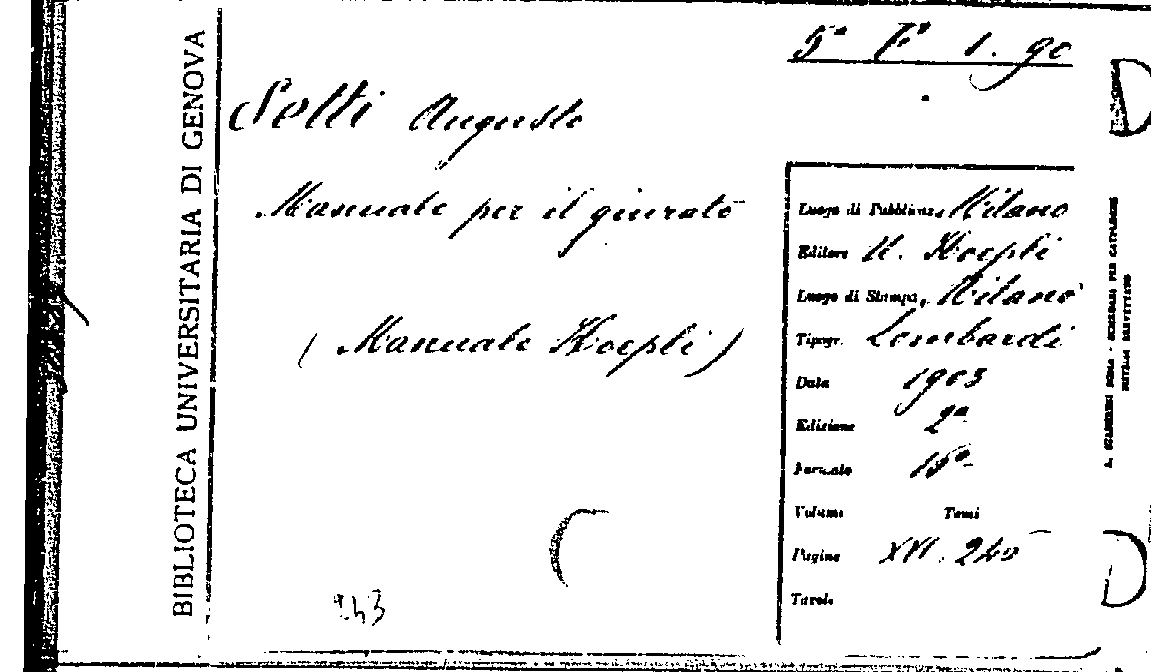 BIBLIOTECA UNIVERSITARIA DI GENOVA
5ª F° 1. 90
Setti Augusto
Manuale per il giurato
(Manuale Hoepli)
Luogo di Pubblicaz. Milano
Editore U. Hoepli
Luogo di Stampa, Milano
Tipogr. Lombardi
Data 1903
Edizione 2ª
Formato 16°
Volumi Tomi
Pagine XVI. 240
Tavole
243